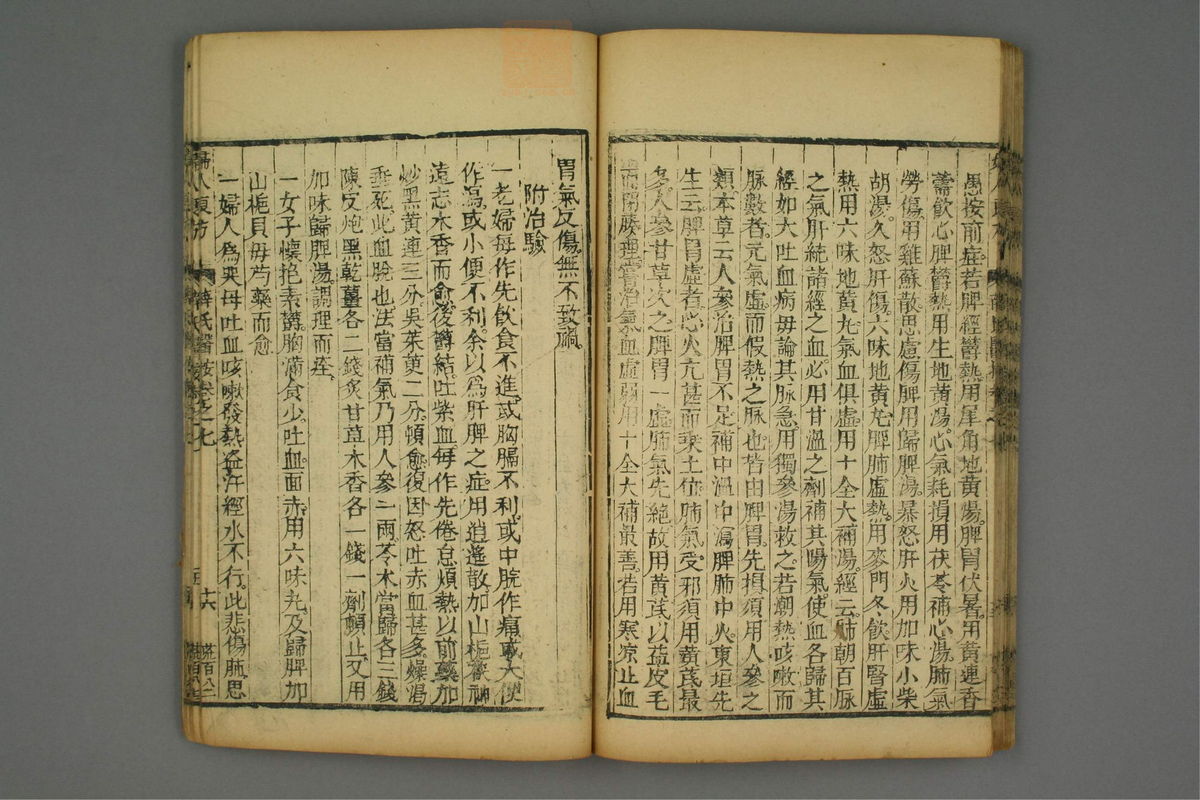 愚按前症若脾經鬱熱用犀角地黃湯脾胃伏暑用黃連香
薷飲心脾鬱熱用生地黃湯心氣耗損用茯苓補心湯肺氣
勞傷用雞蘇散思慮傷脾用歸脾湯暴怒肝火用加味小柴
胡湯久怒肝傷六味地黃丸脾肺虛熱用麥門冬飲肝腎虛
熱用六味地黃丸氣血俱虛用十全大補湯經云肺朝百脈
之氣肝統諸經之血必用甘溫之劑補其陽氣使血各歸其
經如大吐血病毋論其脉急用獨參湯救之若潮熱咳嗽而
脉數者元氣虛而假熱之脉也皆由脾胃先損須用人參之
類本草云人參治脾胃不足補中溫中瀉脾肺中火東垣先
生云脾胃虛者心火亢甚而乗土位肺氣受邪須用黃芪最
多人參甘草次之脾胃一虛肺氣先絕故用黃芪以益皮毛
腠理治氣血虛弱用十全大補最善若用寒凉止血
胃氣反傷無不致禍
附治驗
一老婦每作先飲食不進或胸膈不利或中脘作痛或大便
作瀉或小便不利余以爲肝脾之症用逍遙散加山梔茯神
遠志木香而愈後鬱結吐紫血每作先倦怠煩熱以前藥加
炒黑黃連三分吳茱萸二分頓愈復因怒吐赤血甚多燥渴
垂死此血脫也法當補氣乃用人參二兩苓朮當歸各三錢
陳皮炮黑乾薑各二錢炙甘草木香各一錢一劑頓止又用
加味歸脾湯調理而痊
一女子懷抱素鬱胸滿食少吐血面赤用六味丸及歸脾加
山梔貝母芍藥而愈
一婦人爲哭母吐血咳嗽發熱盜汗經水不行此悲傷肺思
婦人良方
薛氏醫按卷之七